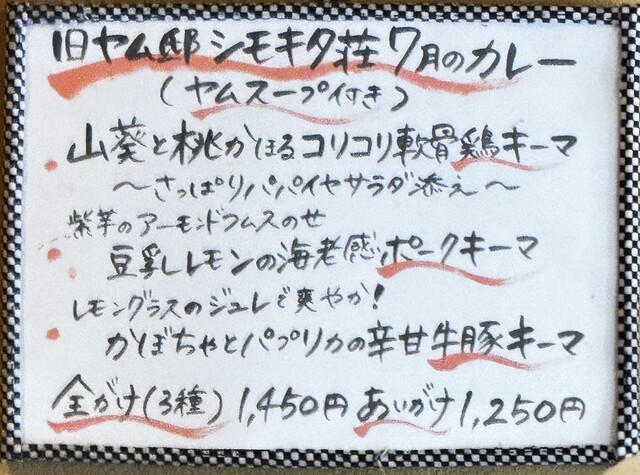 旧ヤム邸 シモキタ荘 7月のカレー
(ヤムスープ付き)
山葵と桃かほるコリコリ軟骨鶏キーマ
〜さっぱりパパイヤサラダ添え〜
紫芋のアーモンドフムスのせ
豆乳レモンの海老感ポークキーマ
レモングラスのジュレで爽やか!
かぼちゃとパプリカの辛甘牛豚キーマ
全がけ(3種) 1,450円 あいがけ 1,250円